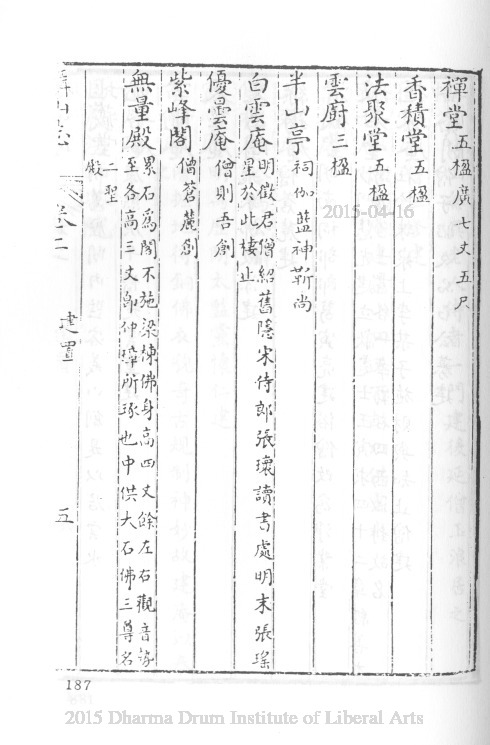 禪堂五楹廣七丈五尺
香積堂五楹
法聚堂五楹
雲廚三楹
半山亭祠伽藍神靳尚
白雲庵明徵君僧紹舊隱宋侍郎張瓌讀書處明末張瑤
星於此棲止
優曇庵僧則吾創
紫峰閣僧茗麓創
無量殿累石爲閣不施梁棟佛身高四丈餘左右觀音
至各高三丈郎仲璋所琢也中供大石佛三尊名
二聖
殿
山志 卷二 建置 五
2015-04-16
187
2015 Dharma Drum Institute of Liberal Arts